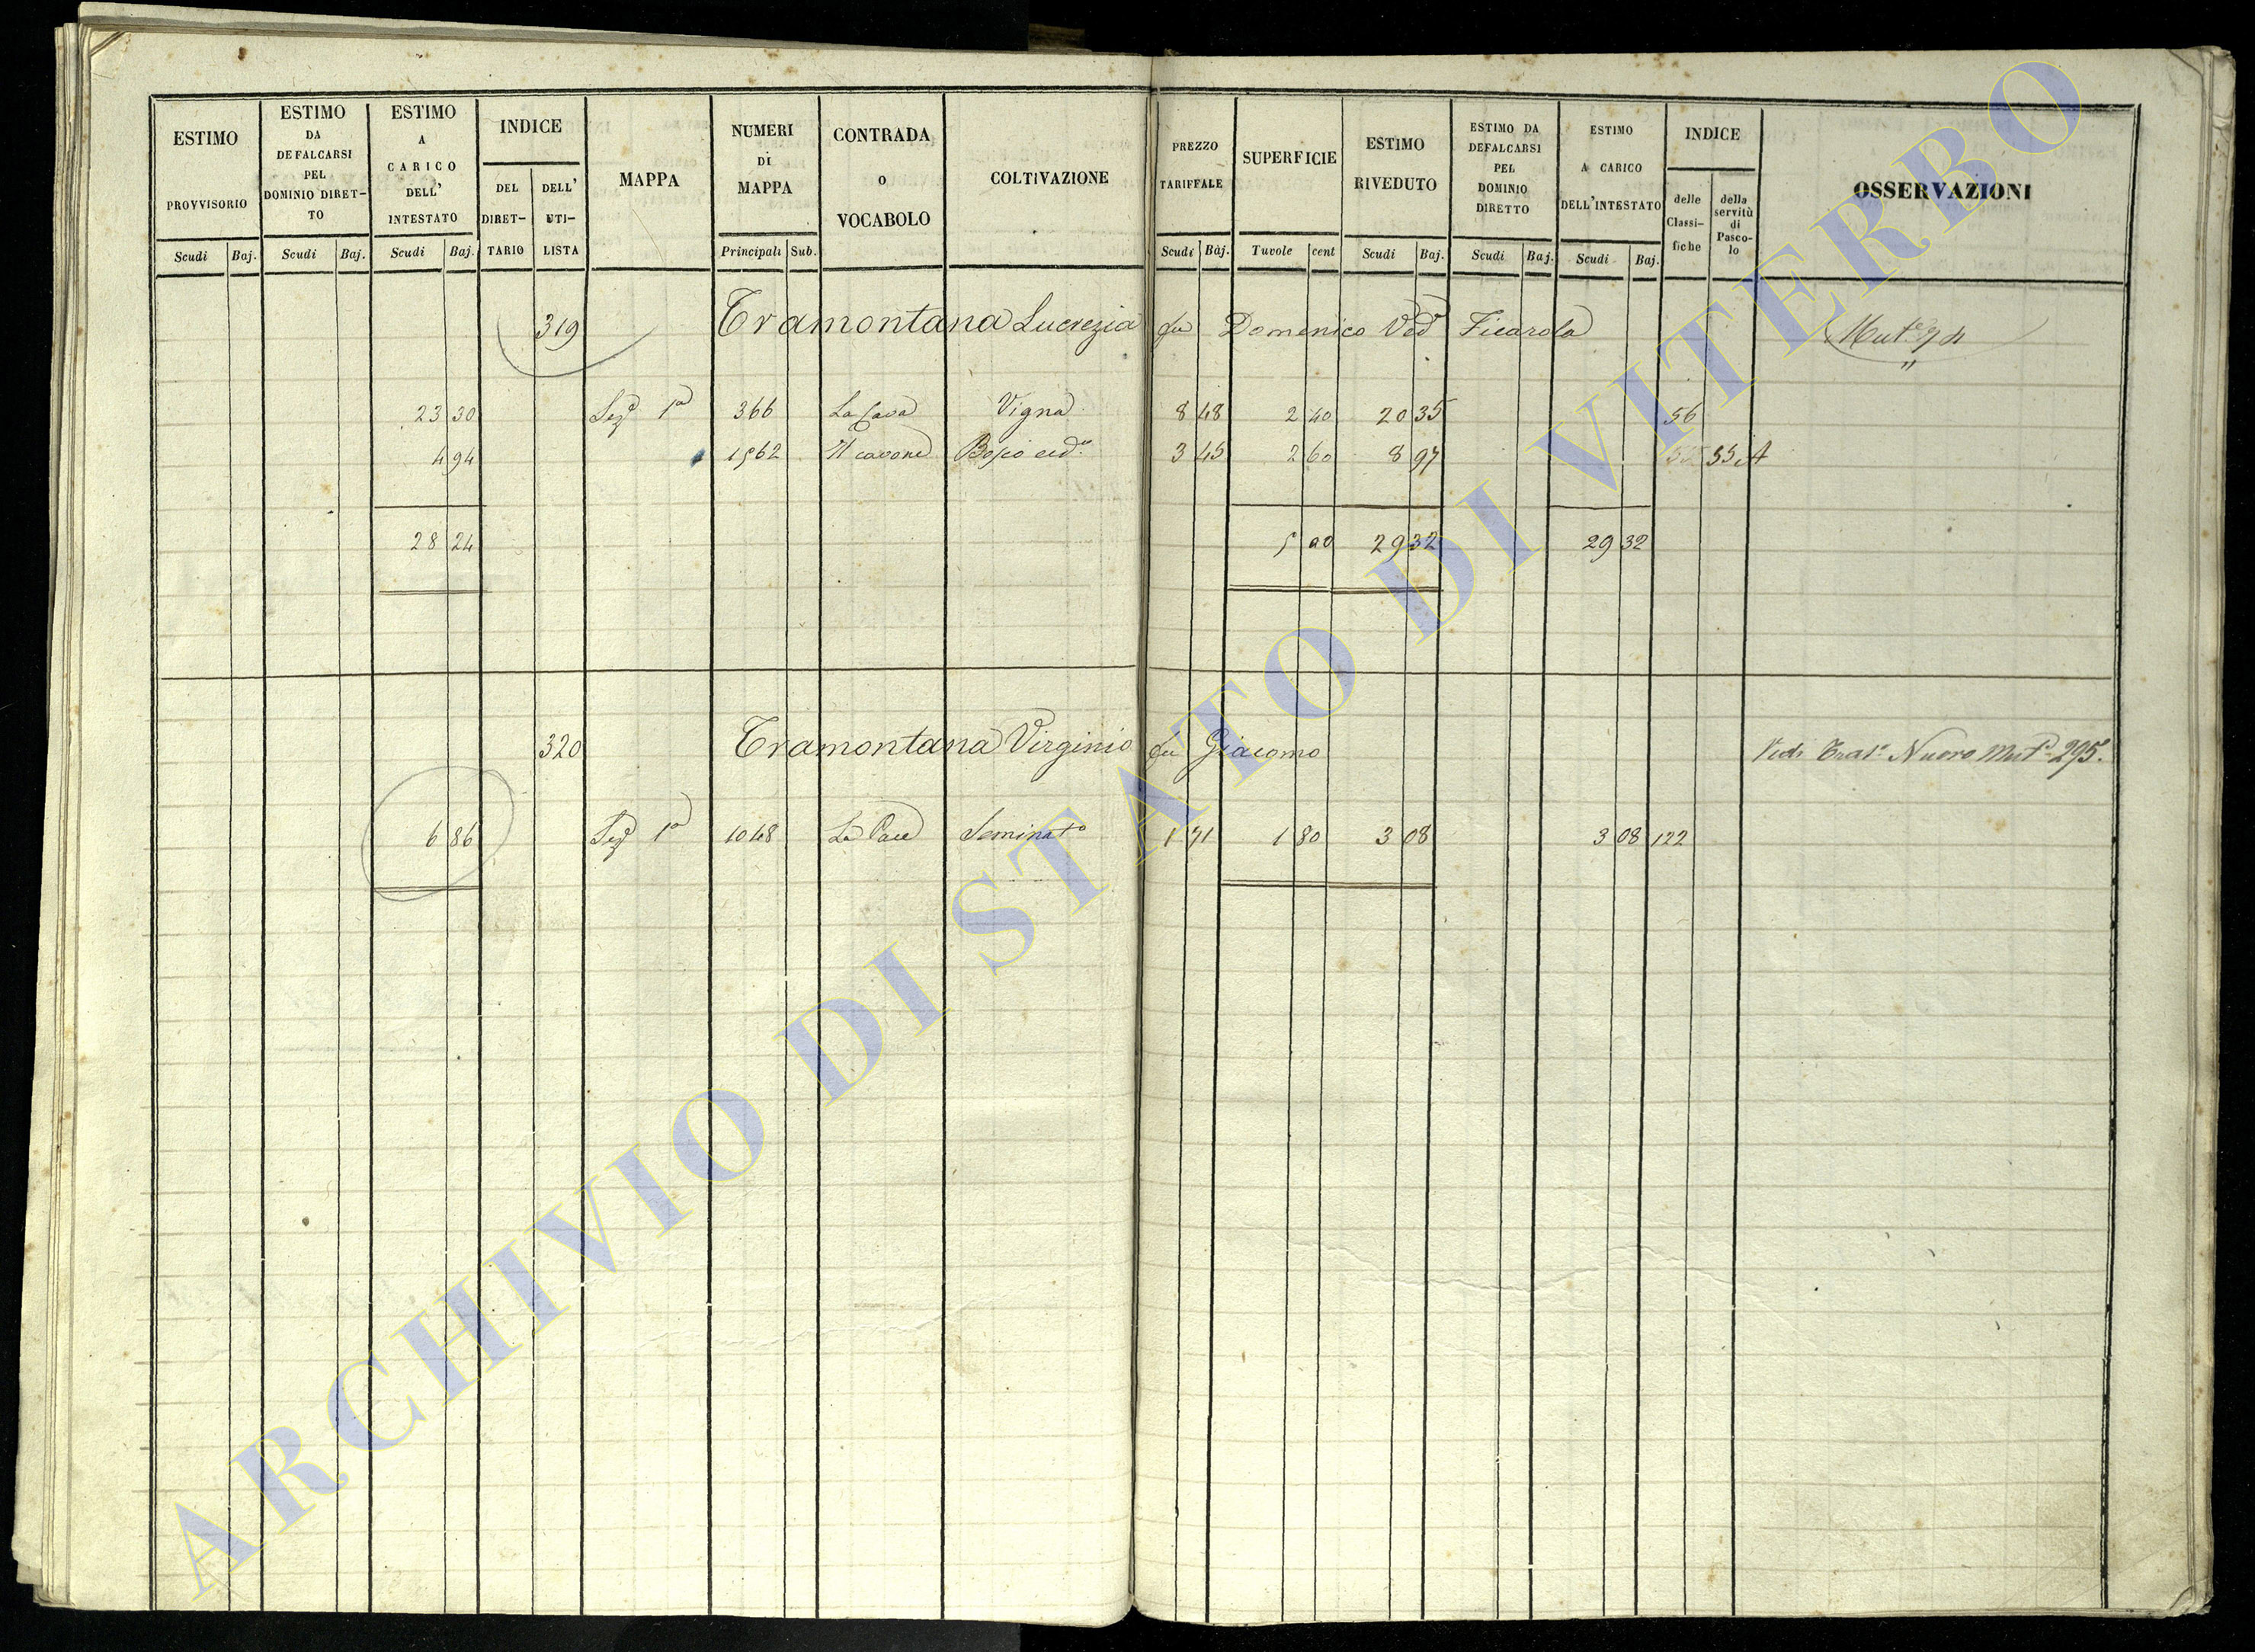 ESTIMO PROVVISORIO
ESTIMO DA DEFALCARSI PEL DOMINIO DIRET-TO
ESTIMO A CARICO DELL' INTESTATO
INDICE
DEL DIRET-TARIO
DELL' UTI-LISTA
MAPPA
NUMERI DI MAPPA
CONTRADA O VOCABOLO
COLTIVAZIONE
PREZZO TARIFFALE
SUPERFICIE
ESTIMO RIVEDUTO
ESTIMO DA DEFALCARSI PEL DOMINIO DIRETTO
ESTIMO A CARICO DELL'INTESTATO
INDICE
delle Classi-fiche
della servitù di Pasco-lo
OSSERVAZIONI
Scudi Baj. Scudi Baj. Scudi Baj. Principali Sub. Scudi Baj. Tavole cent Scudi Baj. Scudi Baj. Scudi Baj.
319 Tramontana Lucrezia fu Domenico Ved Ficarola
23 30 Sez 1a 366 La Cava Vigna 8 48 2 40 20 35 56
4 94 1562 Il cavone Bosco ced 3 45 2 60 8 97 55 A
28 24 5 00 29 32 29 32
320 Tramontana Virginio fu Giacomo Nuovo 295.
6 86 Sez 1a 1048 La Pace Seminato 1 71 1 80 3 08 3 08 122
ARCHIVIO DI STATO DI VITERBO